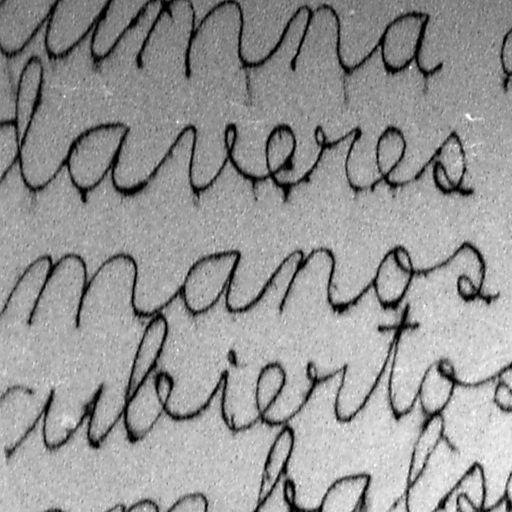 umna
daveres
manos
ubiertos